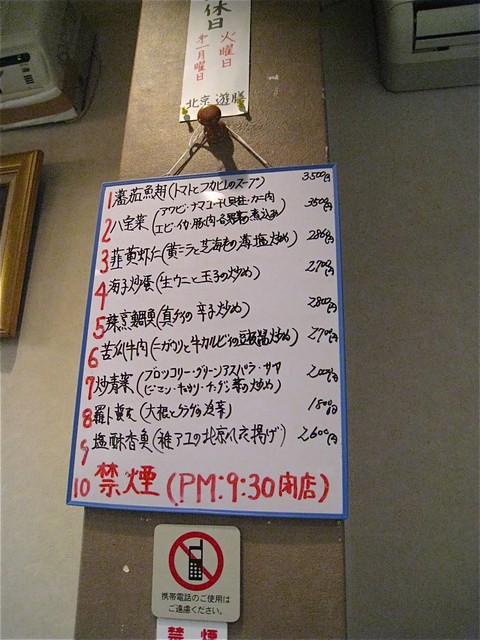 休日
火曜日
第一月曜日
北京遊膳
1 蕃茄魚翅(トマトとフカヒレのスープ) 3500円
2 八宝菜(アワビ・ナマコ・干し貝柱・カニ肉
エビ・イカ・豚肉・の煮込み) 3500円
3 韮黄虾仁(黄ニラと芝海老の薄塩炒め) 2800円
4 海子炒蛋(生ウニと玉子の炒め) 2,700円
5 辣烹鯛(真ダイの辛子炒め) 2800円
6 苦瓜牛肉(ニガウリと牛カルビの豆鼓炒め) 2,700円
7 炒青菜(ブロッコリー・グリーンアスパラ・サヤ
ピーマン・キュウリ・チンゲン菜の炒め) 2,000円
8 羅卜(大根とクラゲの冷菜) 1800円
9 塩酥香魚(稚アユの北京八衣揚げ) 2,600円
10 禁煙(PM:9:30閉店)
携帯電話のご使用は
ご遠慮ください。
禁煙